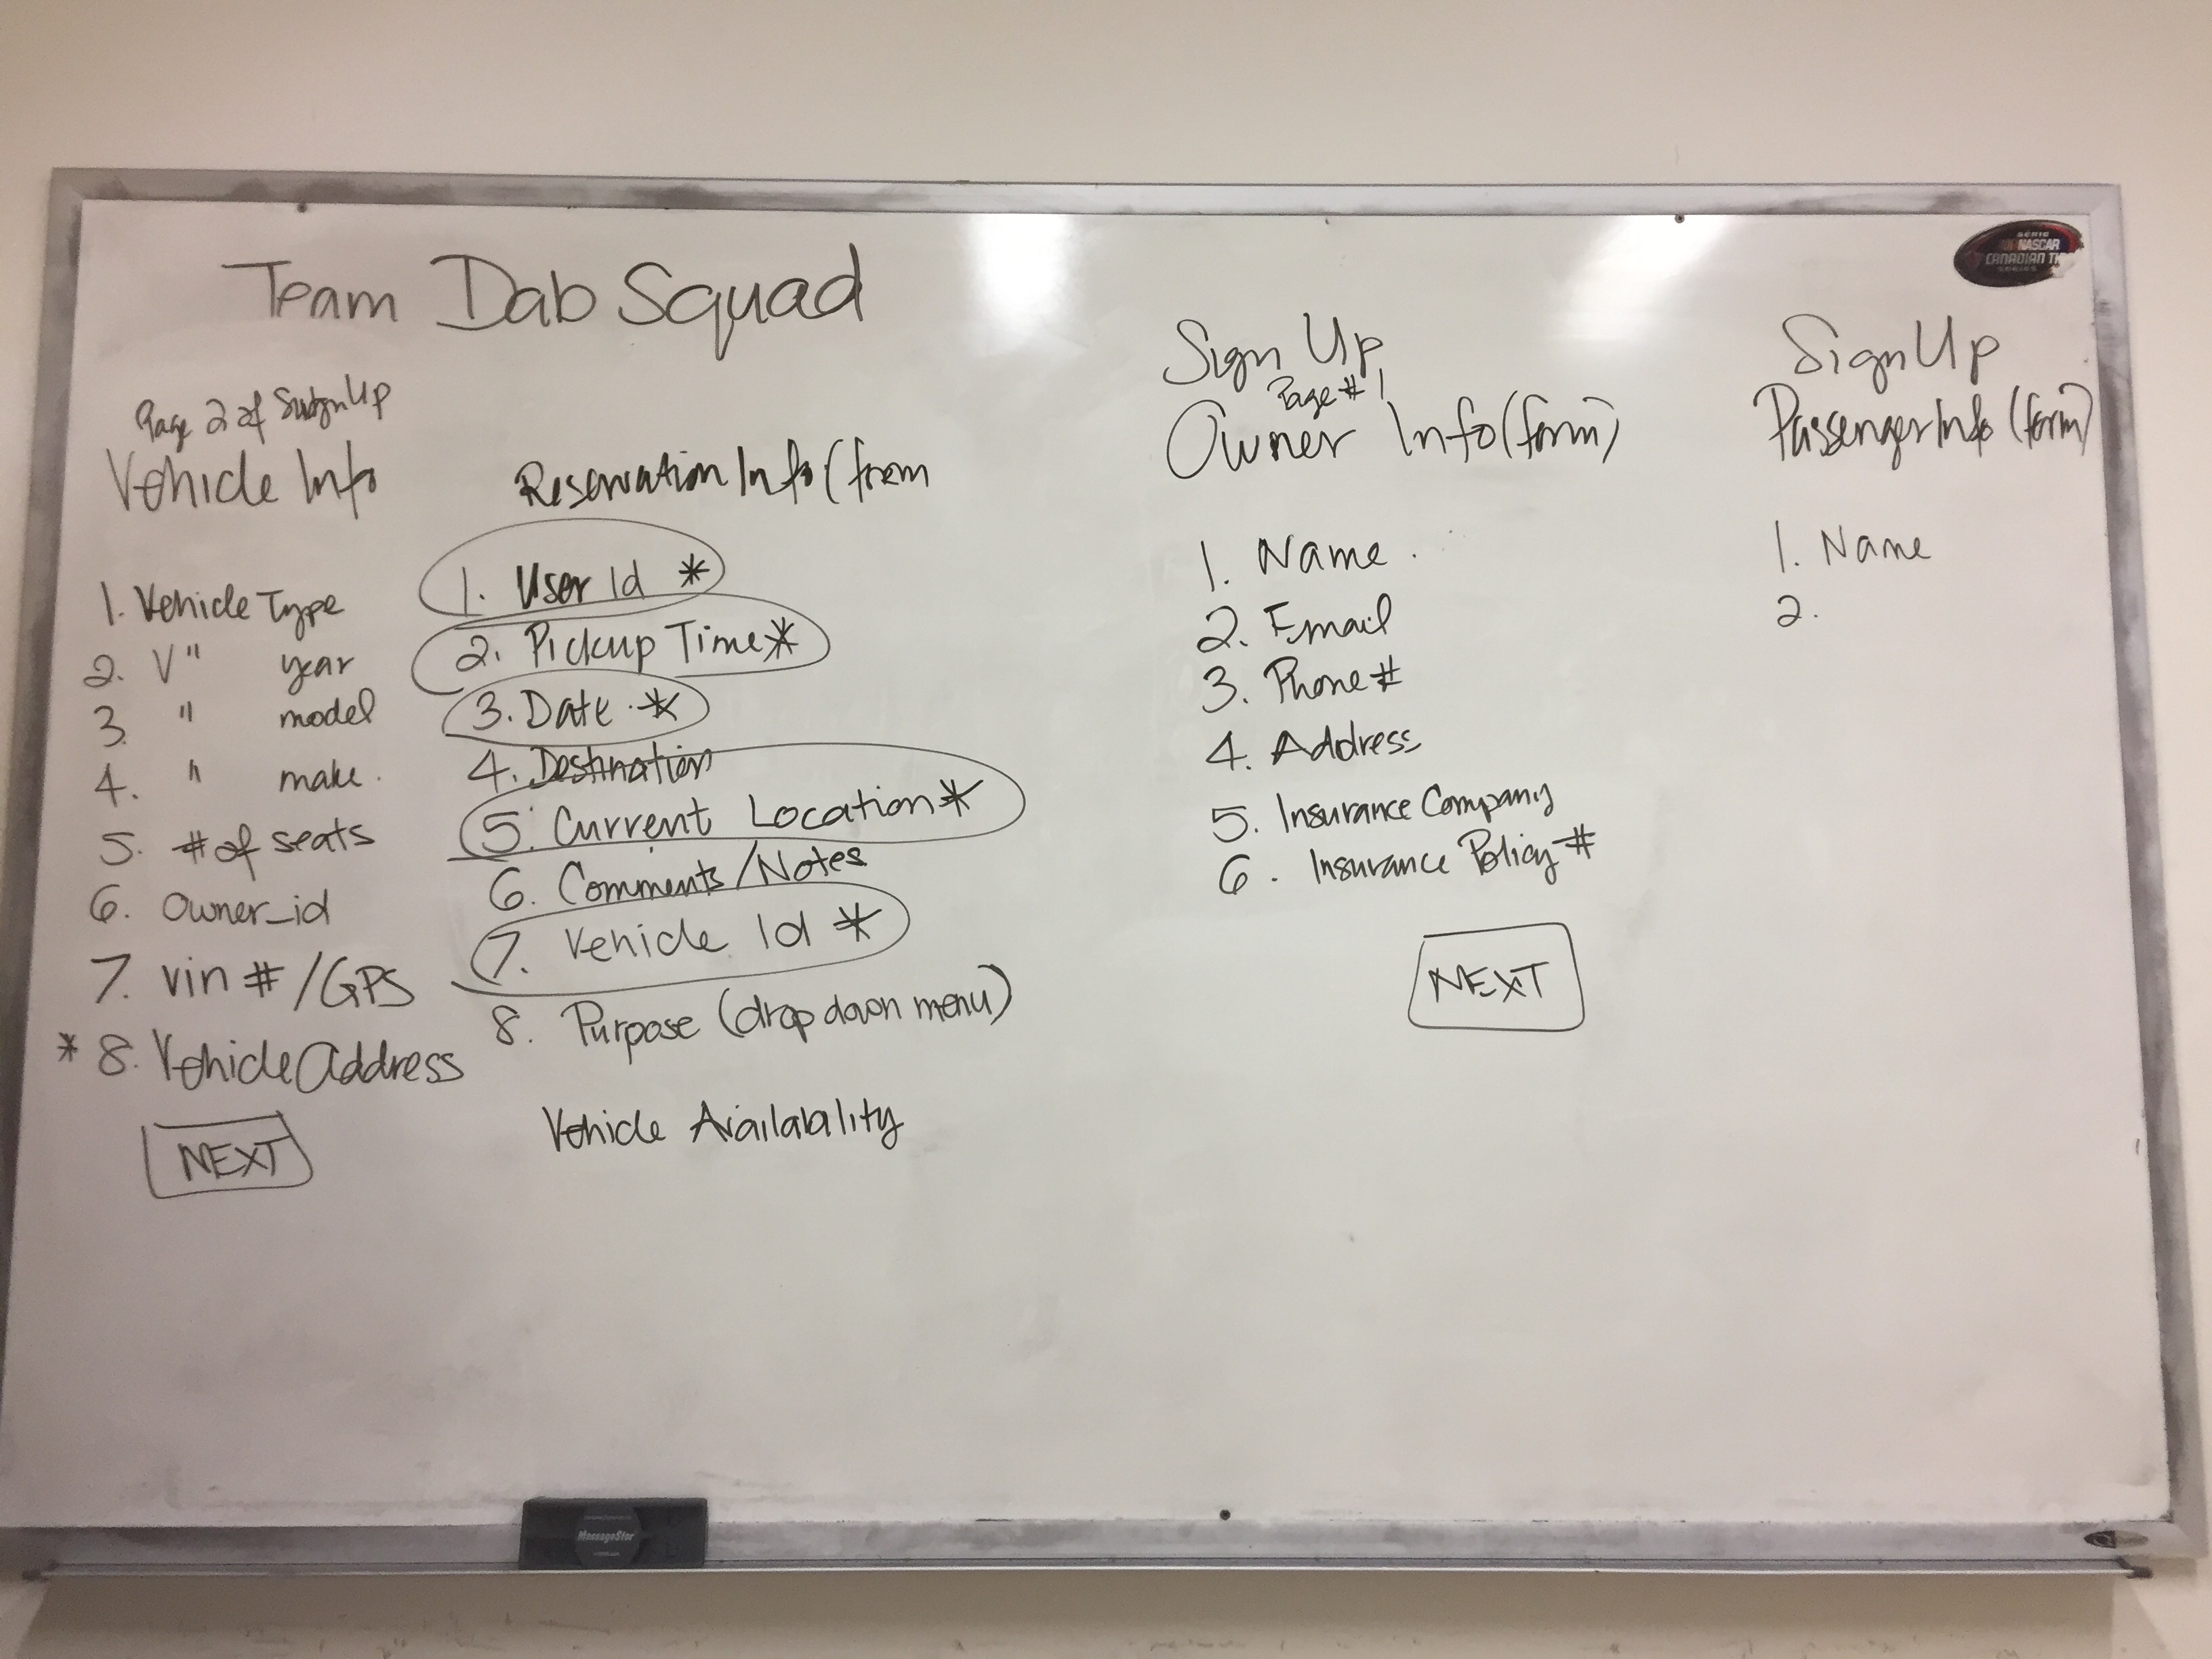 Team Dab Squad
Page 2 of SignUp
Vehicle Info
1. Vehicle Type
2. V " year
3. " model
4. " make.
5. # of seats
6. Owner_id
7. vin # /GPS
* 8. Vehicle Address
NEXT
Reservation Info (from
1. User Id *
2. Pickup Time *
3. Date *
4. Destination
5. Current Location *
6. Comments/Notes
7. Vehicle Id *
8. Purpose (drop down menu)
Vehicle Availability
Sign Up
Page # 1
Owner Info (form)
1. Name
2. Email
3. Phone #
4. Address
5. Insurance Company
6. Insurance Policy #
NEXT
Sign Up
Passenger Info (form)
1. Name
2.
SERIE
NASCAR
CANADIAN TI
SERIES
MessageStor